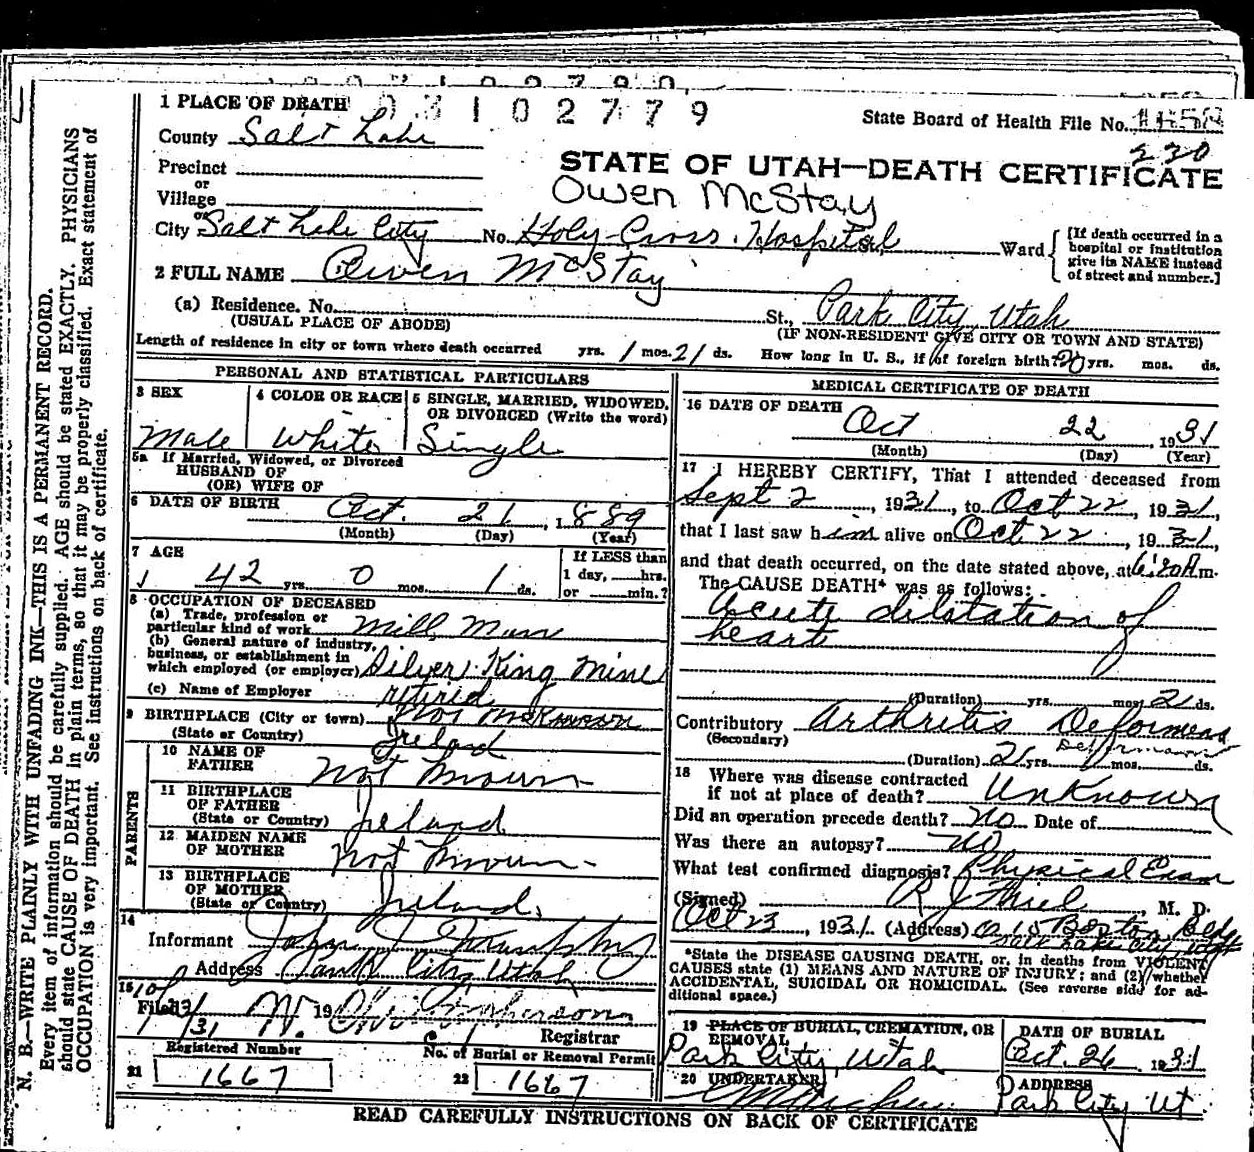 1 PLACE OF DEATH 03102779
State Board of Health File No.
County Salt Lake
220
Precinct
STATE OF UTAH—DEATH CERTIFICATE
or
Village
Owen McStay
or
City Salt Lake City No. Holy Cross Hospital Ward
[If death occurred in a
hospital or institution
give its NAME instead
of street and number.]
2 FULL NAME Owen McStay
(a) Residence. No. St., Park City, Utah
(USUAL PLACE OF ABODE) (IF NON-RESIDENT GIVE CITY OR TOWN AND STATE)
Length of residence in city or town where death occurred yrs. 1 mos. 21 ds. How long in U. S., if of foreign birth? 20 yrs. mos. ds.
PERSONAL AND STATISTICAL PARTICULARS
3 SEX
Male
4 COLOR OR RACE
White
5 SINGLE, MARRIED, WIDOWED,
OR DIVORCED (Write the word)
Single
5a If Married, Widowed, or Divorced
HUSBAND OF
(OR) WIFE OF
6 DATE OF BIRTH Oct. 21, 1889
(Month) (Day) (Year)
7 AGE
42 yrs. 0 mos. 1 ds.
If LESS than
1 day, hrs.
or min.?
8 OCCUPATION OF DECEASED
(a) Trade, profession or
particular kind of work Mill Man
(b) General nature of industry,
business, or establishment in
which employed (or employer) Silver King Mine
(c) Name of Employer retired
9 BIRTHPLACE (City or town) Not Known
(State or Country) Ireland
PARENTS
10 NAME OF
FATHER Not Known
11 BIRTHPLACE
OF FATHER
(State or Country) Ireland
12 MAIDEN NAME
OF MOTHER Not Known
13 BIRTHPLACE
OF MOTHER
(State or Country) Ireland.
14
Informant John J. Murphy
Address Park City, Utah
15
Filed 10/31 19
Registrar
Registered Number
21 1667
No. of Burial or Removal Permit
22 1667
MEDICAL CERTIFICATE OF DEATH
16 DATE OF DEATH
Oct 22, 1931
(Month) (Day) (Year)
17 I HEREBY CERTIFY, That I attended deceased from
Sept 2, 1931, to Oct 22, 1931,
that I last saw him alive on Oct 22, 1931,
and that death occurred, on the date stated above, at 6:20 A m.
The CAUSE DEATH* was as follows:
Acute dilatation of
heart
(Duration) yrs. mos. 2 ds.
Contributory Arthritis Deformans
(Secondary) Deformans
(Duration) 2 yrs. mos. ds.
18 Where was disease contracted
if not at place of death? Unknown
Did an operation precede death? No Date of
Was there an autopsy? No
What test confirmed diagnosis? Physical Exam
(Signed) R J Thiel, M. D.
Oct 23, 1931. (Address) Boston Bldg
Salt Lake City Utah
*State the DISEASE CAUSING DEATH, or, in deaths from VIOLENT
CAUSES state (1) MEANS AND NATURE OF INJURY; and (2) whether
ACCIDENTAL, SUICIDAL OR HOMICIDAL. (See reverse side for ad-
ditional space.)
19 PLACE OF BURIAL, CREMATION, OR
REMOVAL
Park City, Utah
DATE OF BURIAL
Oct. 26 1931
20 UNDERTAKER
ADDRESS
Park City Ut
READ CAREFULLY INSTRUCTIONS ON BACK OF CERTIFICATE
N. B.—WRITE PLAINLY WITH UNFADING INK—THIS IS A PERMANENT RECORD.
Every item of information should be carefully supplied. AGE should be stated EXACTLY. PHYSICIANS
should state CAUSE OF DEATH in plain terms, so that it may be properly classified. Exact statement of
OCCUPATION is very important. See instructions on back of certificate.